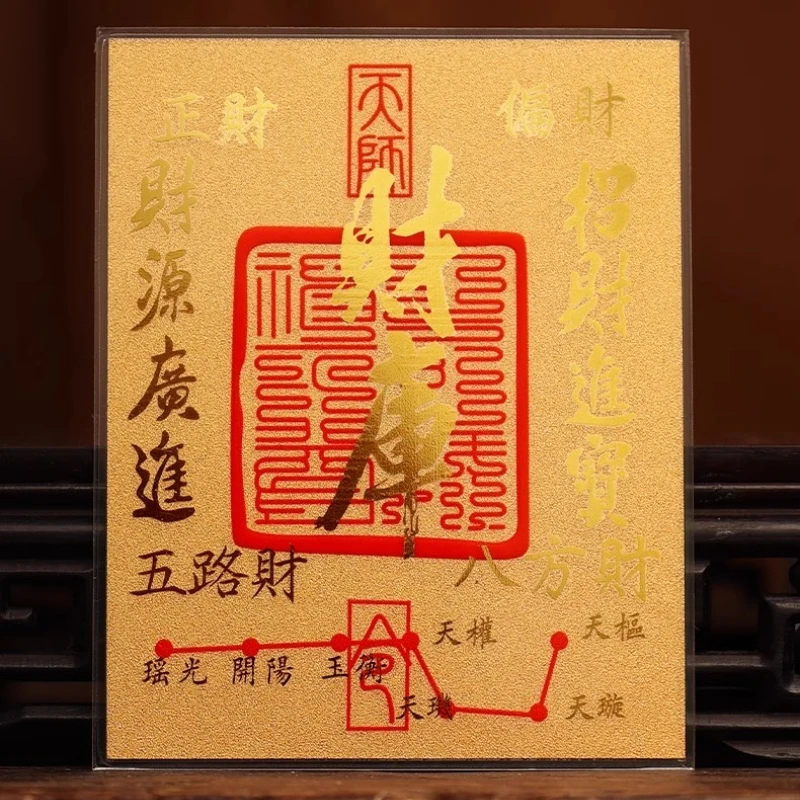 天師
正財
偏財
財庫
招財進寶
財源廣進
五路財
八方財
令
瑶光
開陽
玉衡
天權
天璣
天璇
天樞